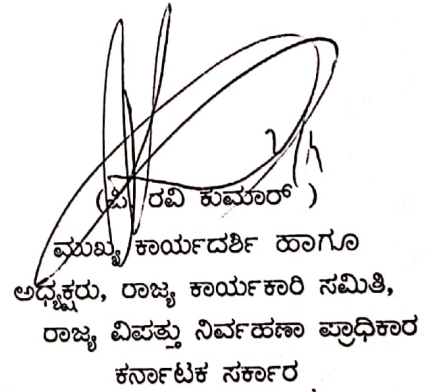 (ಪಿ ರವಿ ಕುಮಾರ್ )
ಮುಖ್ಯ ಕಾರ್ಯದರ್ಶಿ ಹಾಗೂ
ಅಧ್ಯಕ್ಷರು, ರಾಜ್ಯ ಕಾರ್ಯಕಾರಿ ಸಮಿತಿ,
ರಾಜ್ಯ ವಿಪತ್ತು ನಿರ್ವಹಣಾ ಪ್ರಾಧಿಕಾರ
ಕರ್ನಾಟಕ ಸರ್ಕಾರ